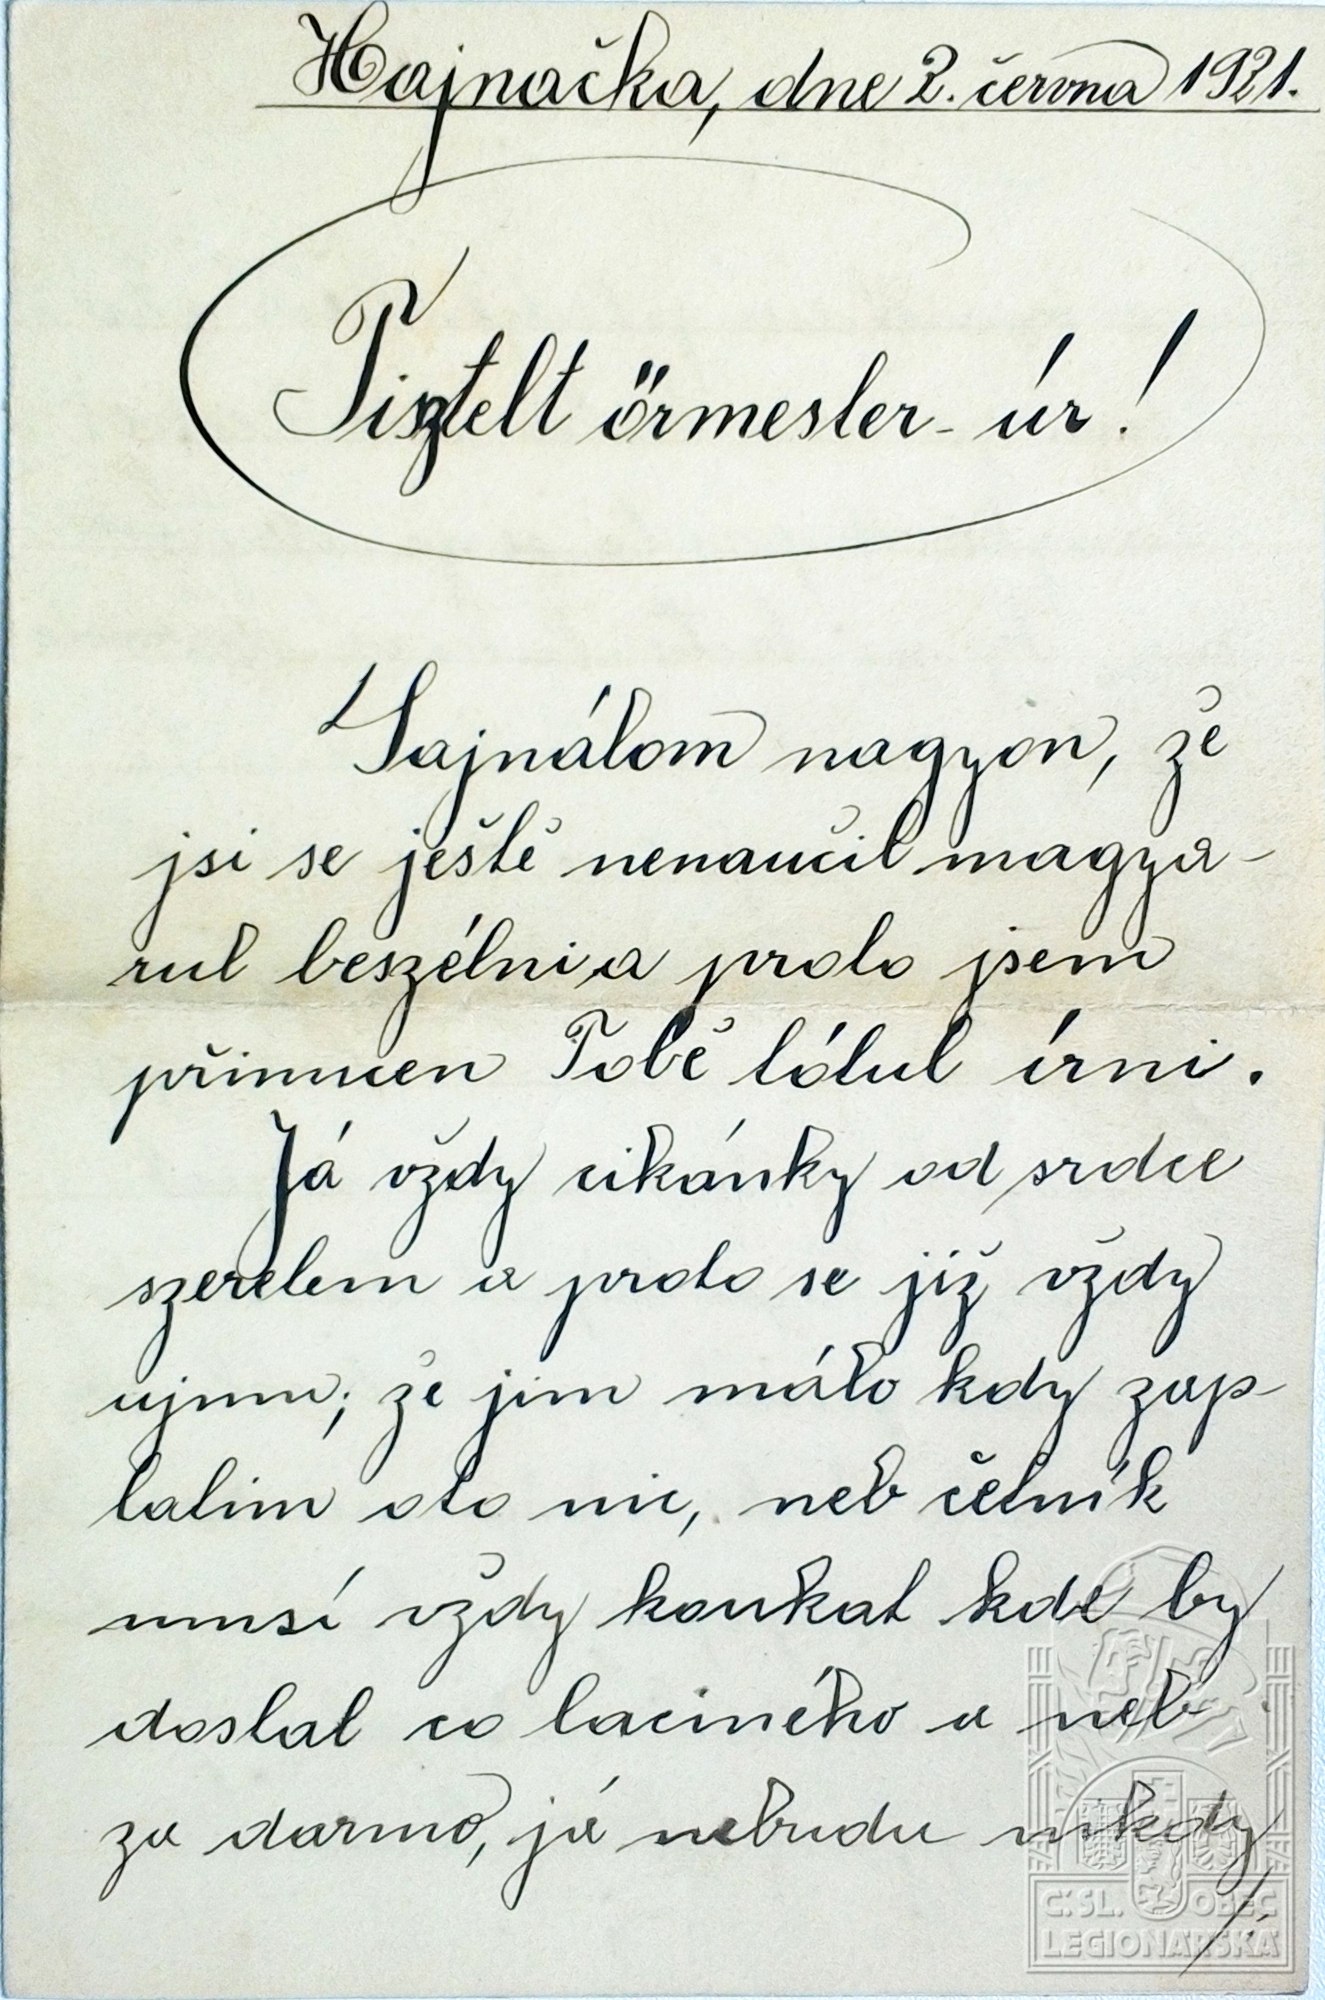 Hajnačka, dne 2. června 1921.
Tisztelt örmester-úr!
Sajnálom nagyon, že
jsi se ještě nenaučil magya-
rul beszélni a proto jsem
přinucen Tobě tótul írni.
Já vždy cikánky od srdce
szerelem a proto se již vždy
ujmu; že jim málo kdy zap-
latim oto nic, neb četník
musí vždy koukat kde by
dostal co laciného a neb
za darmo, já nebudu nikdy
./.
Č.SL. OBEC
LEGIONÁŘSKÁ